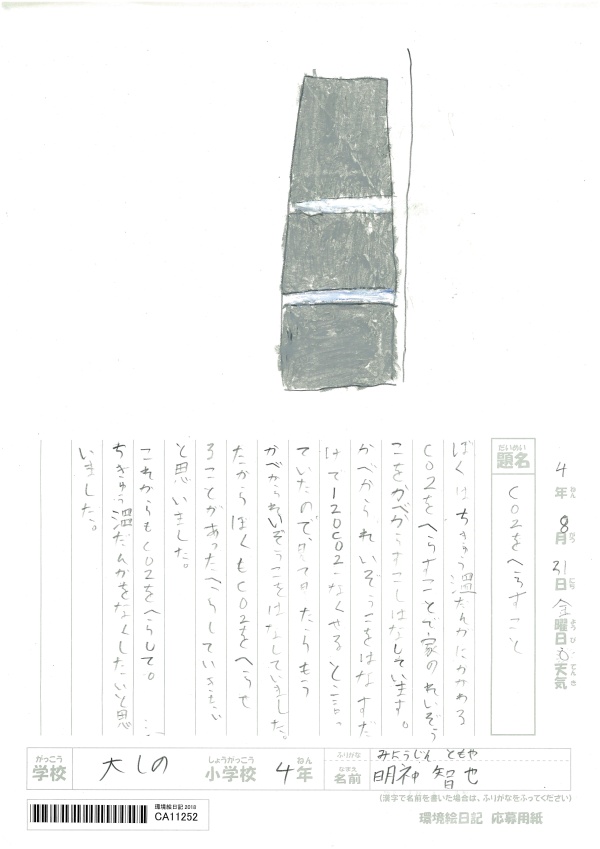 4年8月31日金曜日 天気
ねん がつ にち ようび てんき
だいめい
題名
CO2をへらすこと
ぼくはちきゅう温だんかにかかわる
CO2をへらすことで家のれいぞう
こをかべからすこしはなしています。
かべかられいぞうこをはなすだ
けで120CO2なくせると言っ
ていたので、ママたらもう
かべかられいぞうこをはなしていました。
だからぼくもCO2をへらせ
ることがあったへらしていきたい
と思いました。
これからもCO2をへらして。
ちきゅう温だんかをなくしたいと思
いました。
がっこう
学校
大しの
しょうがっこう
小学校
4年
ねん
ふりがな
みようじん ともや
なまえ
名前
明神 智也
(漢字で名前を書いた場合は、ふりがなをふってください)
環境絵日記 2018
CA11252
環境絵日記 応募用紙